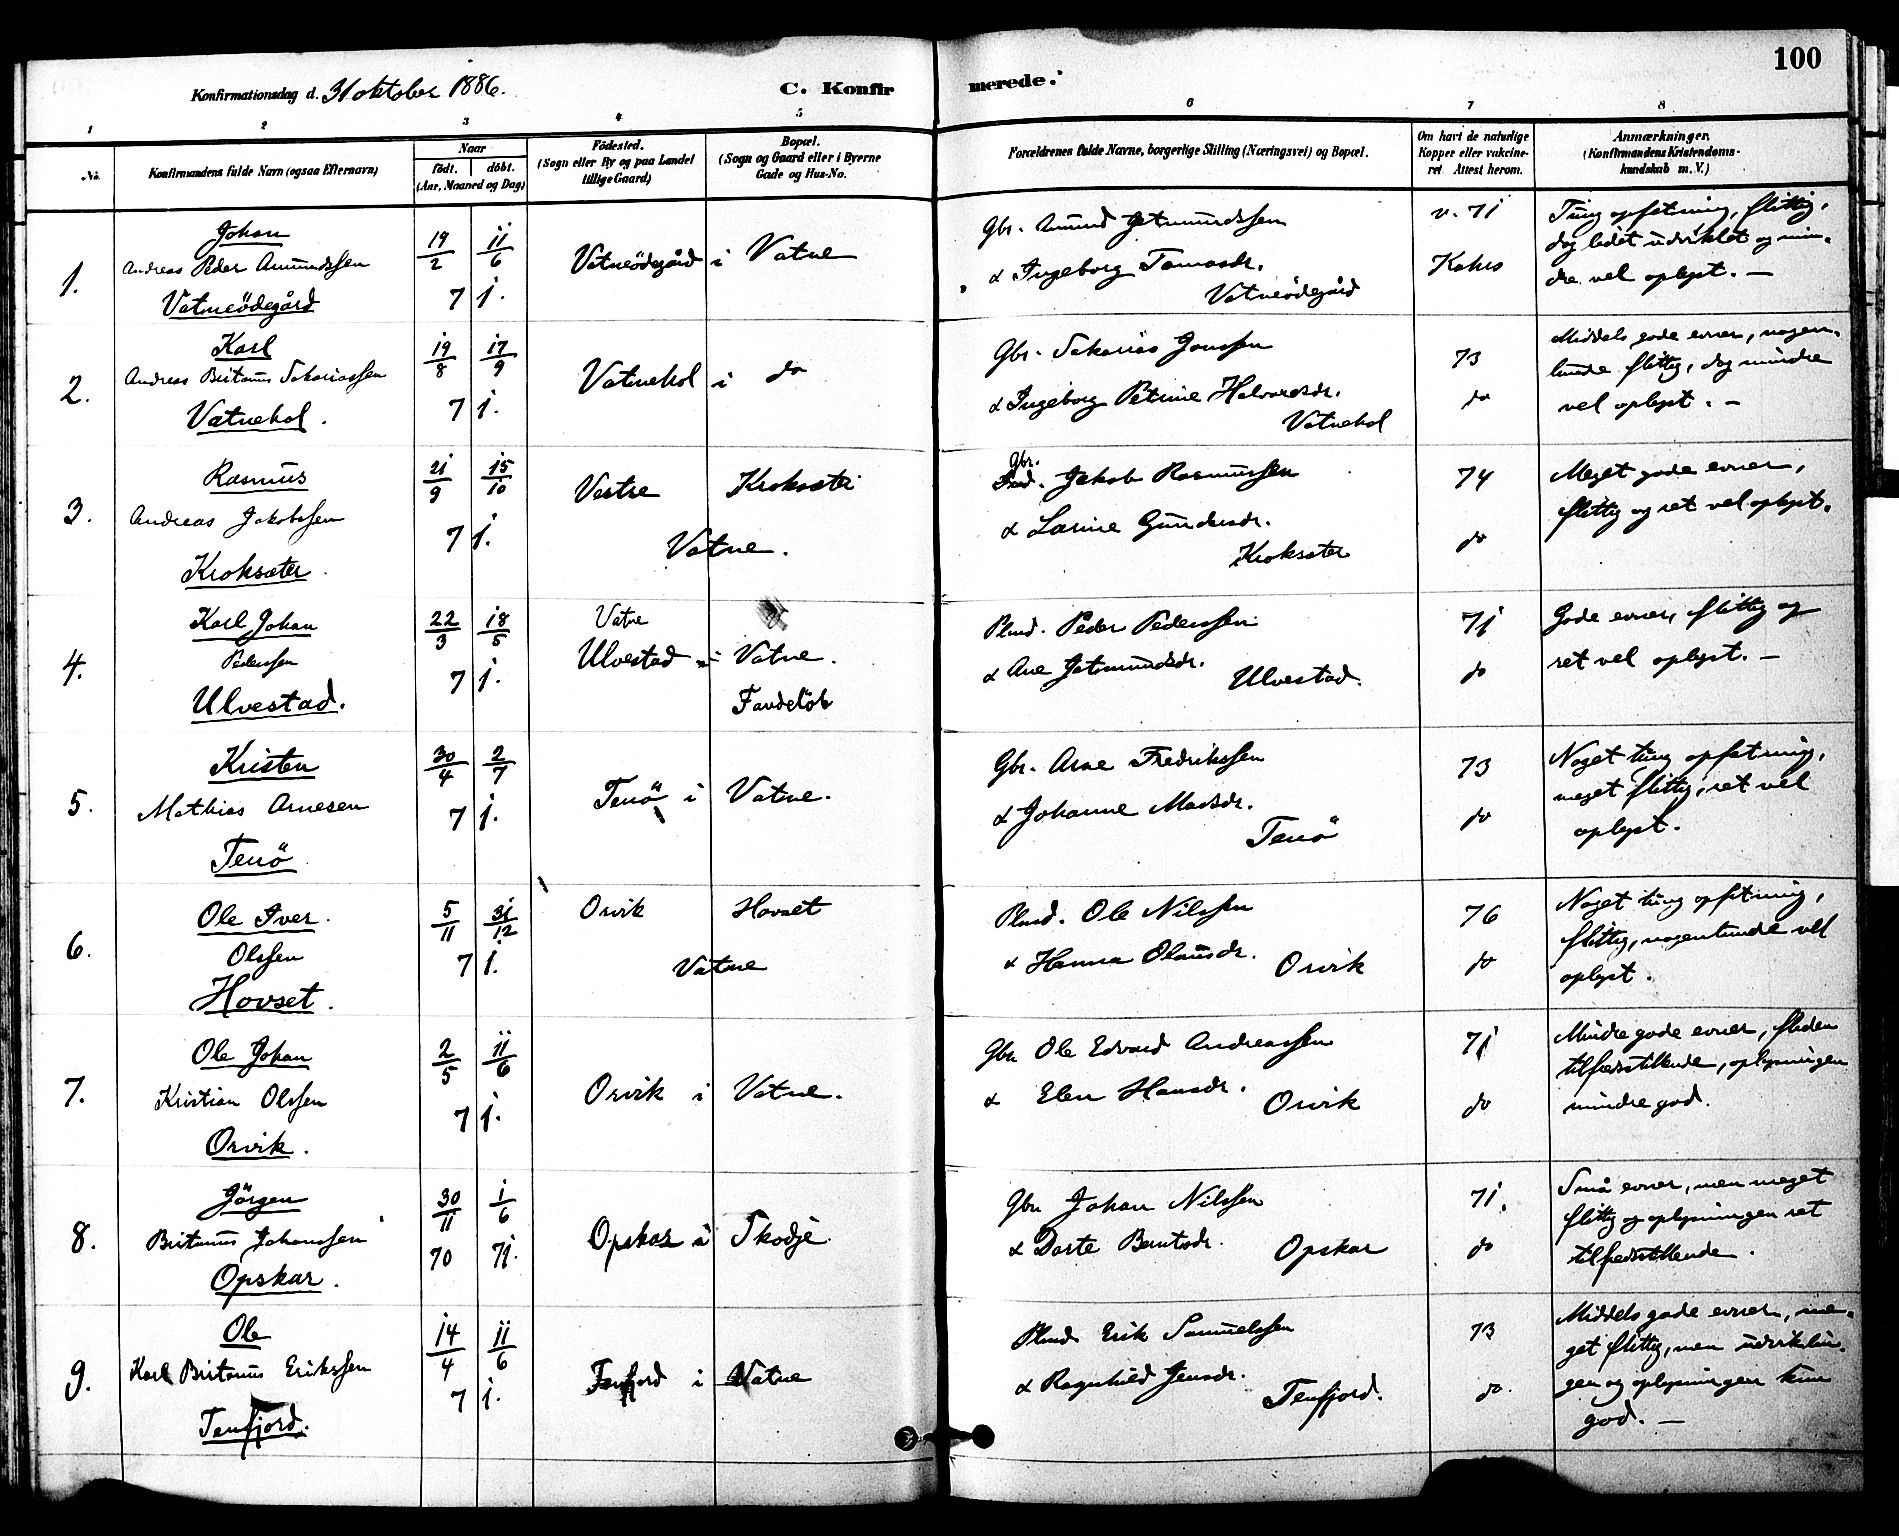 100
Konfirmationsdag d. 31 oktober 1886.
C. Konfirmerede.
1 2 3 4 5 6 7 8
No.
Konfirmandens fulde Navn (ogsaa Efternavn)
Naar
födt. döbt.
(Aar, Maaned og Dag)
Födested.
(Sogn eller By og paa Landet
tillige Gaard)
Bopæl.
(Sogn og Gaard eller i Byerne
Gade og Hus-No.
Forældrenes fulde Navne, borgerlige Stilling (Næringsvei) og Bopæl.
Om havt de naturlige
Kopper eller vakcine-
ret Attest herom.
Anmærkninger.
(Konfirmandens Kristendoms-
kundskab m. V.)
1.
Johan
Andreas Peder Amundssen
Vatneödegård
19/2 11/6
71.
Vatneödegård i Vatne
Gbr. Amund Jetmundssen
& Ingeborg Tomasdr.
Vatneödegård
v. 71
Kahrs
Tung opfatning, flittig,
dog lidet udviklet og min-
dre vel oplyst. —
2.
Karl
Andreas Britanus Sakariassen
Vatnehol.
19/8 17/9
71.
Vatnehol i do
Gbr. Sakarias Jonssen
& Ingeborg Petrine Halvardsdr.
Vatnehol
73
do
Middels gode evner, nogen-
lunde flittig, dog mindre
vel oplyst. —
3.
Rasmus
Andreas Jakobssen
Kroksæter
21/9 15/10
71.
Vestre Kroksæter
Vatne.
Gbr.
Jakob Rasmussen
& Larine Gundersdr.
Kroksæter
74
do
Meget gode evner,
flittig og ret vel oplyst.
4.
Karl Johan
Pederssen
Ulvestad.
22/3 18/5
71.
Vatne
Ulvestad i Vatne.
Plmd. Peder Pederssen
& Ane Jetmundsdr.
Ulvestad.
71
do
Gode evner, flittig og
ret vel oplyst. —
5.
Kristen
Mathias Arnesen
Tenö
30/4 2/7
71.
Tenö i Vatne.
Gbr. Arne Fredrikssen
& Johanne Madsdr.
Tenö
73
do
Noget tung opfatning,
meget flittig, ret vel
oplyst.
6.
Ole Iver
Olssen
Hovset.
5/11 31/12
71.
Orvik Hovset
Vatne
Plmd. Ole Nilssen
& Hanna Olausdr.
Orvik
76
do
Noget tung opfatning,
flittig, nogenlunde vel
oplyst.
7.
Ole Johan
Kristian Olssen
Orvik.
2/5 11/6
71.
Orvik i Vatne.
Gbr. Ole Edvard Andreassen
& Elen Hansdr.
Orvik
71
do
Mindre gode evner, fliden
tilfredsstillende, oplysningen
mindre god.
8.
Jörgen
Britanus Johanssen
Opskar.
30/11 1/6
70 71.
Opskar i Skodje
Gbr. Johan Nilssen
& Dorte Berntsdr.
Opskar
71.
do
Små evner, men meget
flittig og oplysningen ret
tilfredsstillende.
9.
Ole
Karl Britanus Erikssen
Tenfjord.
14/4 11/6
71.
Tenfjord i Vatne
Plmd. Erik Samuelssen
& Ragnhild Jensdr.
Tenfjord.
73
do.
Middels gode evner, me-
get flittig, men udviklin-
gen og oplysningen kun
god. —